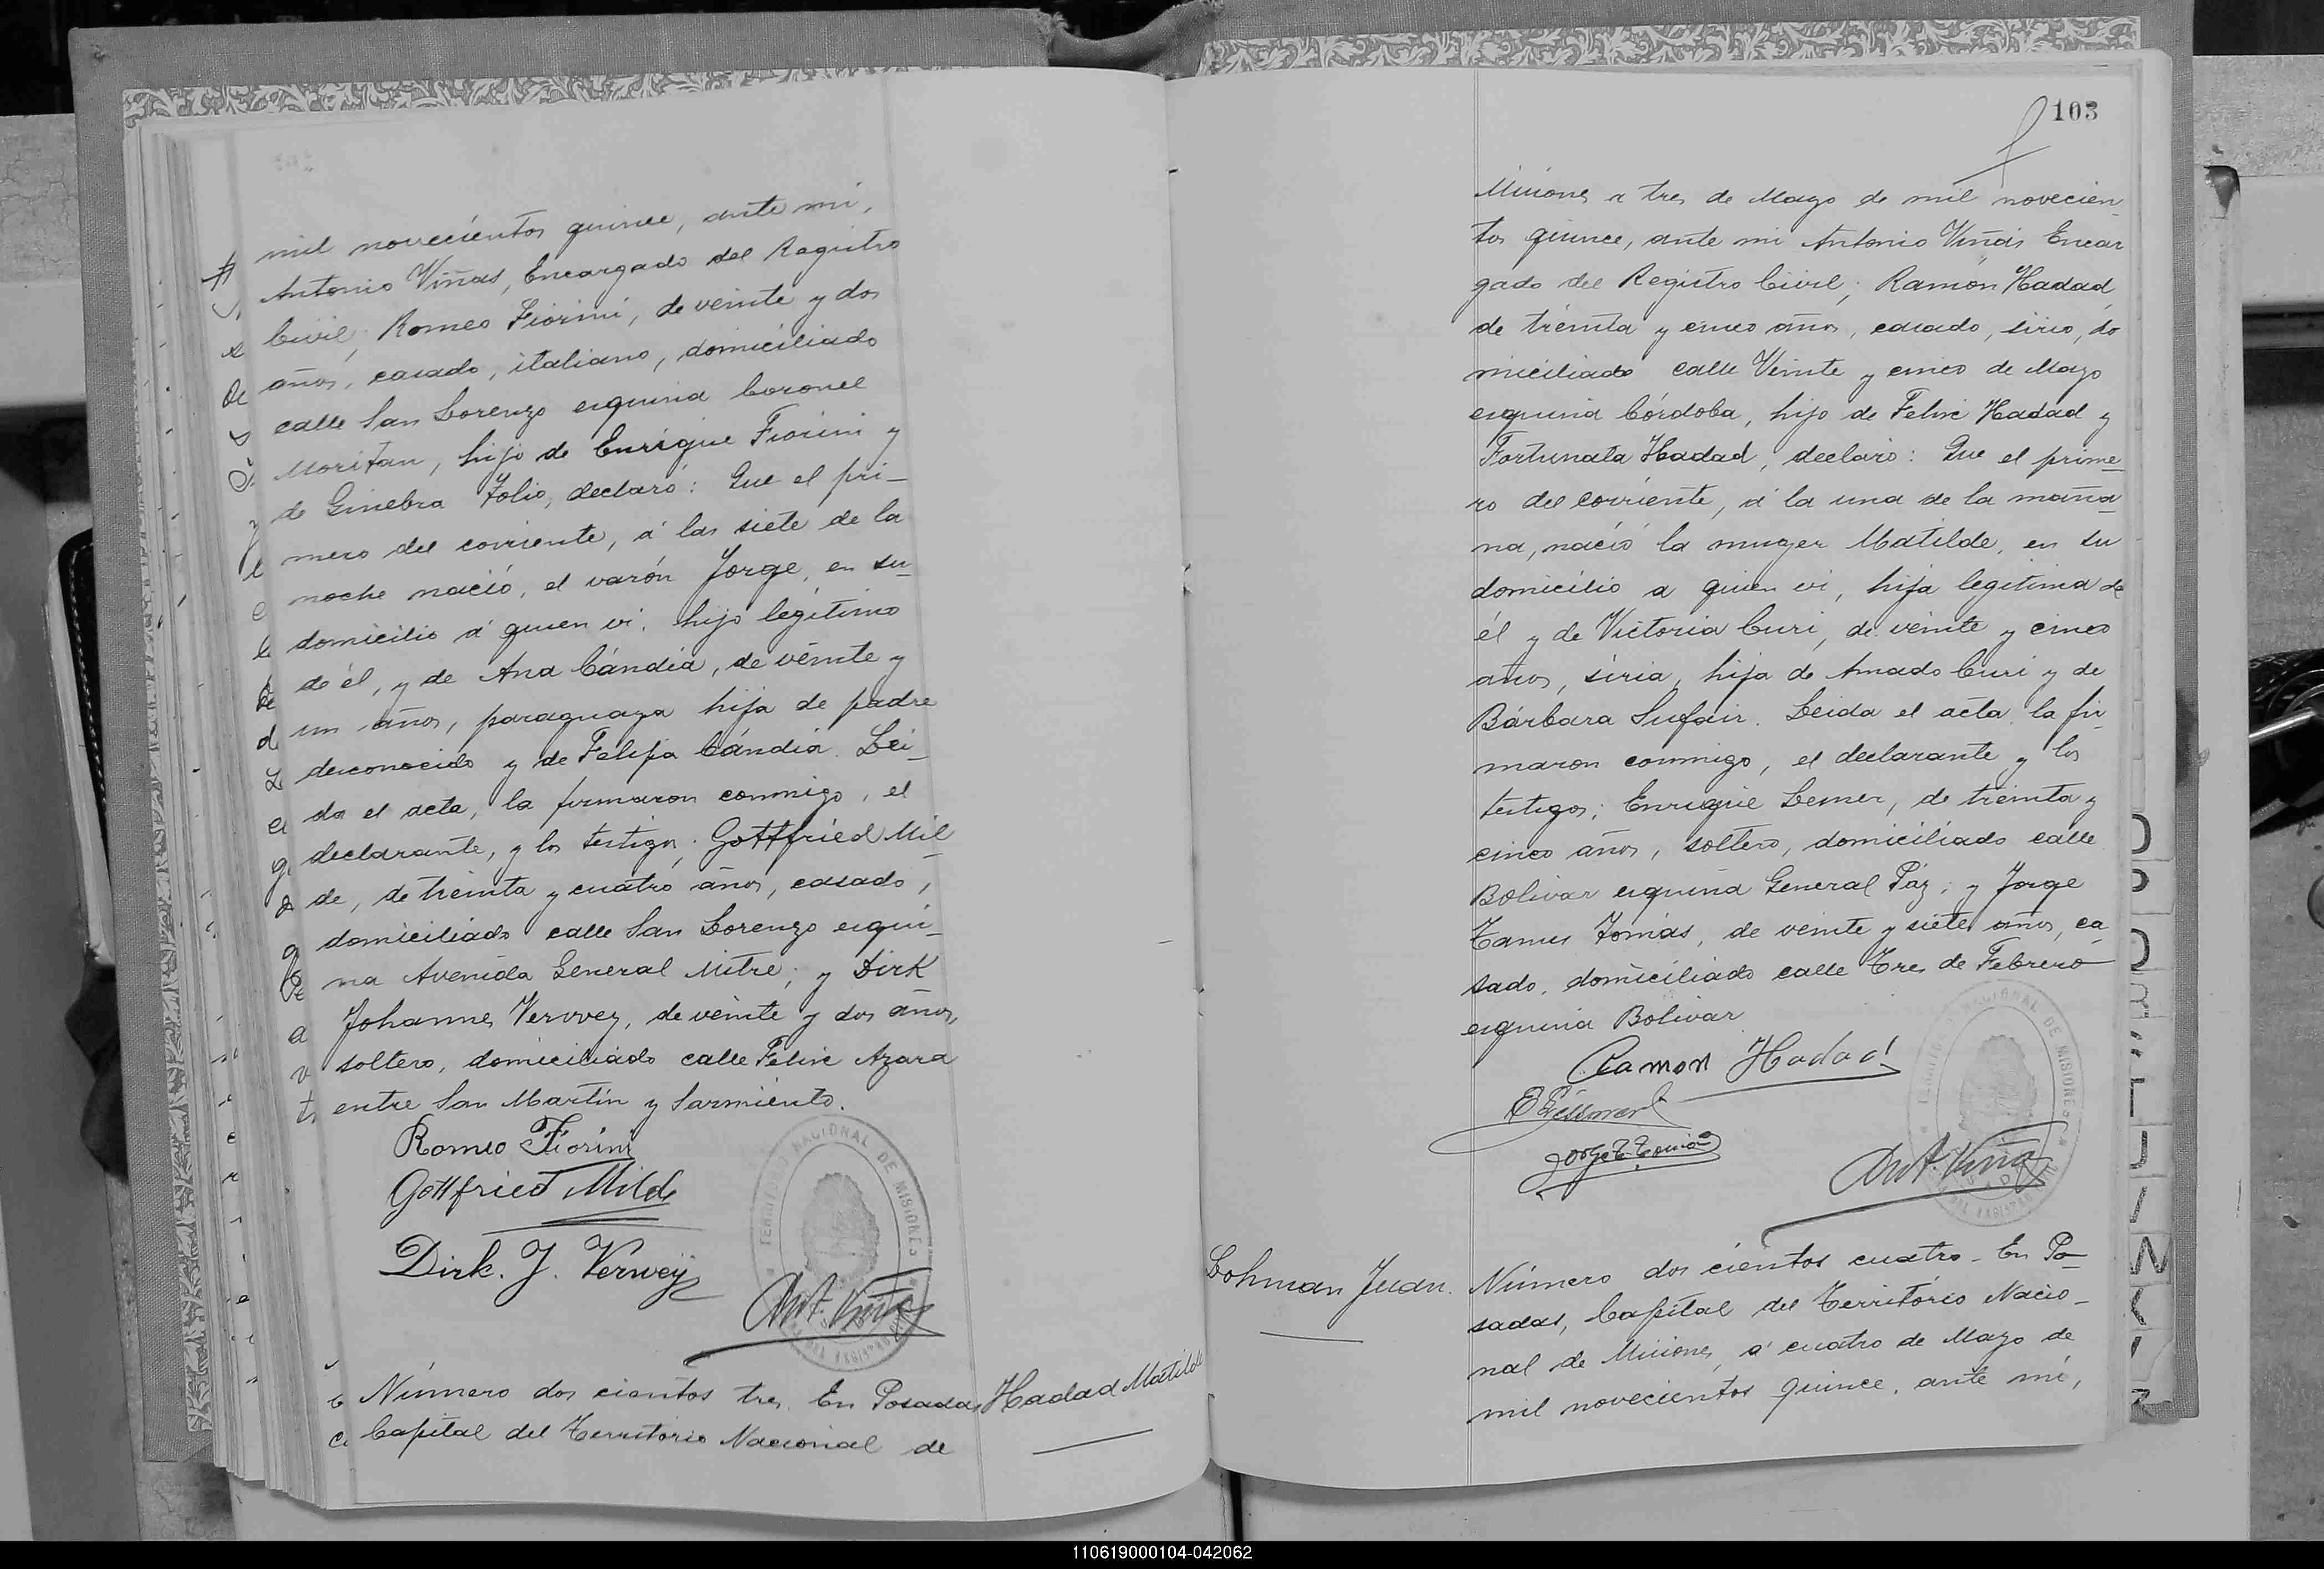 mil novecientos quince, ante mi,
Antonio Viñas, Encargado del Registro
Civil, Romeo Fiorini, de veinte y dos
años, casado, italiano, domiciliado
calle San Lorenzo esquina Coronel
Moritan, hijo de Enrique Fiorini y
de Ginebra Folio, declaró: Que el pri-
mero del corriente, á las siete de la
noche nació, el varón Jorge, en su
domicilio á quien vi, hijo legítimo
de él, y de Ana Cándia, de veinte y
un años, paraguaya hija de padre
desconocido y de Felipa Cándia. Lei-
da el acta, la firmaron conmigo, el
declarante, y los testigos: Gottfried Mil-
de, de treinta y cuatro años, casado,
domiciliado calle San Lorenzo esqui-
na Avenida General Mitre; y Dirk
Johannes Verwey, de veinte y dos años,
soltero, domiciliado calle Felix Azara
entre San Martín y Sarmiento.
Romeo Fiorini
Gottfried Milde
Dirk. J. Verweÿ
Ant. Viñas
TERRITORIO NACIONAL DE MISIONES
Número dos cientos tres. En Posadas,
Capital del Territorio Nacional de
Hadad Matilde
103
Misiones a tres de Mayo de mil novecien-
tos quince, ante mi Antonio Viñas Encar
gado del Registro Civil; Ramón Hadad,
de treinta y cinco años, casado, sirio, do
miciliado calle Veinte y cinco de Mayo
esquina Córdoba, hijo de Felix Hadad y
Fortunata Hadad, declaró: Que el prime
ro del corriente, á la una de la maña
na, nació la muger Matilde, en su
domicilio a quien vi, hija legitima de
él y de Victoria Curi, de veinte y cinco
años, siria, hija de Amado Curi y de
Bárbara Sufair. Leida el acta la fir-
maron conmigo, el declarante y los
testigos; Enrique Lemer, de treinta y
cinco años, soltero, domiciliado calle
Bolivar esquina General Paz; y Jorge
Tanus Tomás, de veinte y siete años, ca
sado, domiciliado calle Tres de Febrero
esquina Bolivar
Ramon Hadad
Ant. Viñas
TERRITORIO NACIONAL DE MISIONES
Lohman Juan.
Número dos cientos cuatro - En Po-
sadas, Capital del Territorio Nacio-
nal de Misiones, a cuatro de Mayo de
mil novecientos quince, ante mí,
110619000104-042062